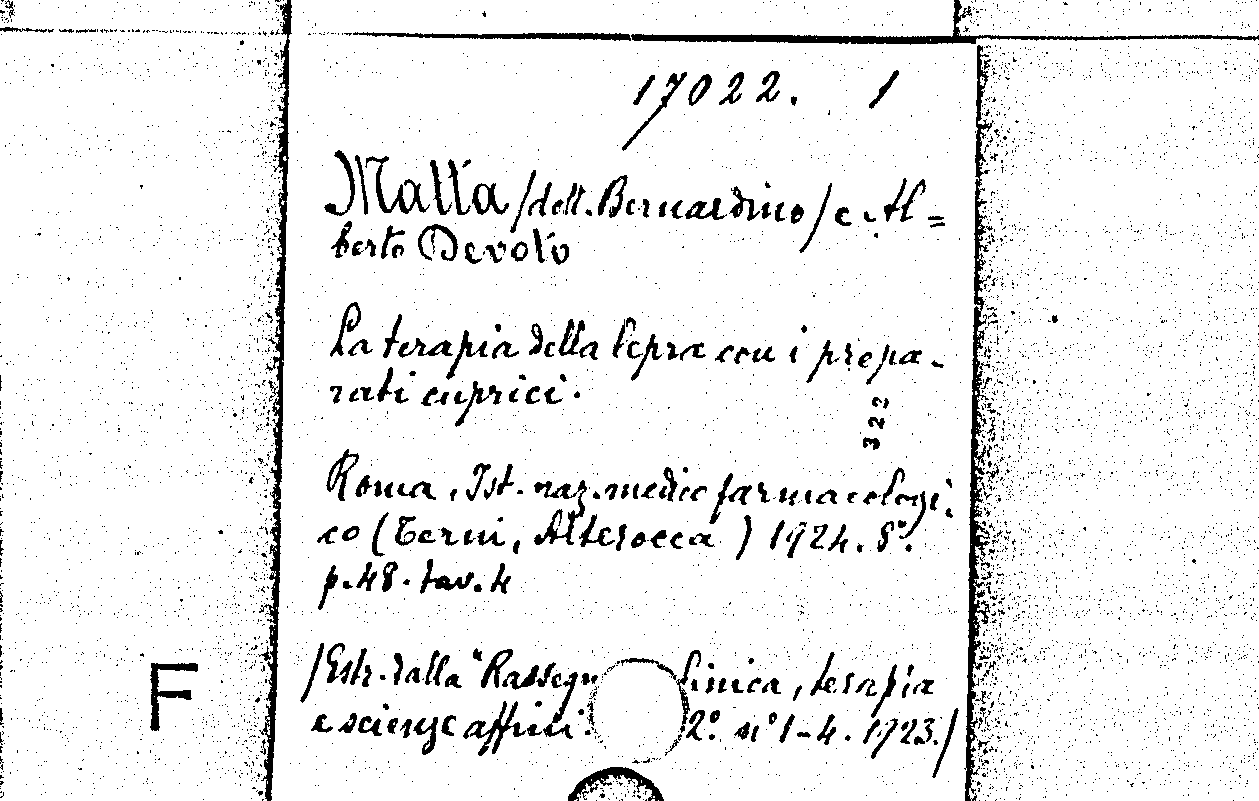 17022. 1
Malla /dott. Bernardino/ e Al=
berto Devoto
La terapia della lepra con i prepa-
rati cuprici.
322
Roma, Ist. naz. medico farmacologi-
co (Terni, Alterocca) 1924. 8°.
p. 48. tav. 4
/Estr. dalla "Rassegn linica, terapia
e scienze affini. 2° n° 1-4. 1923./
F